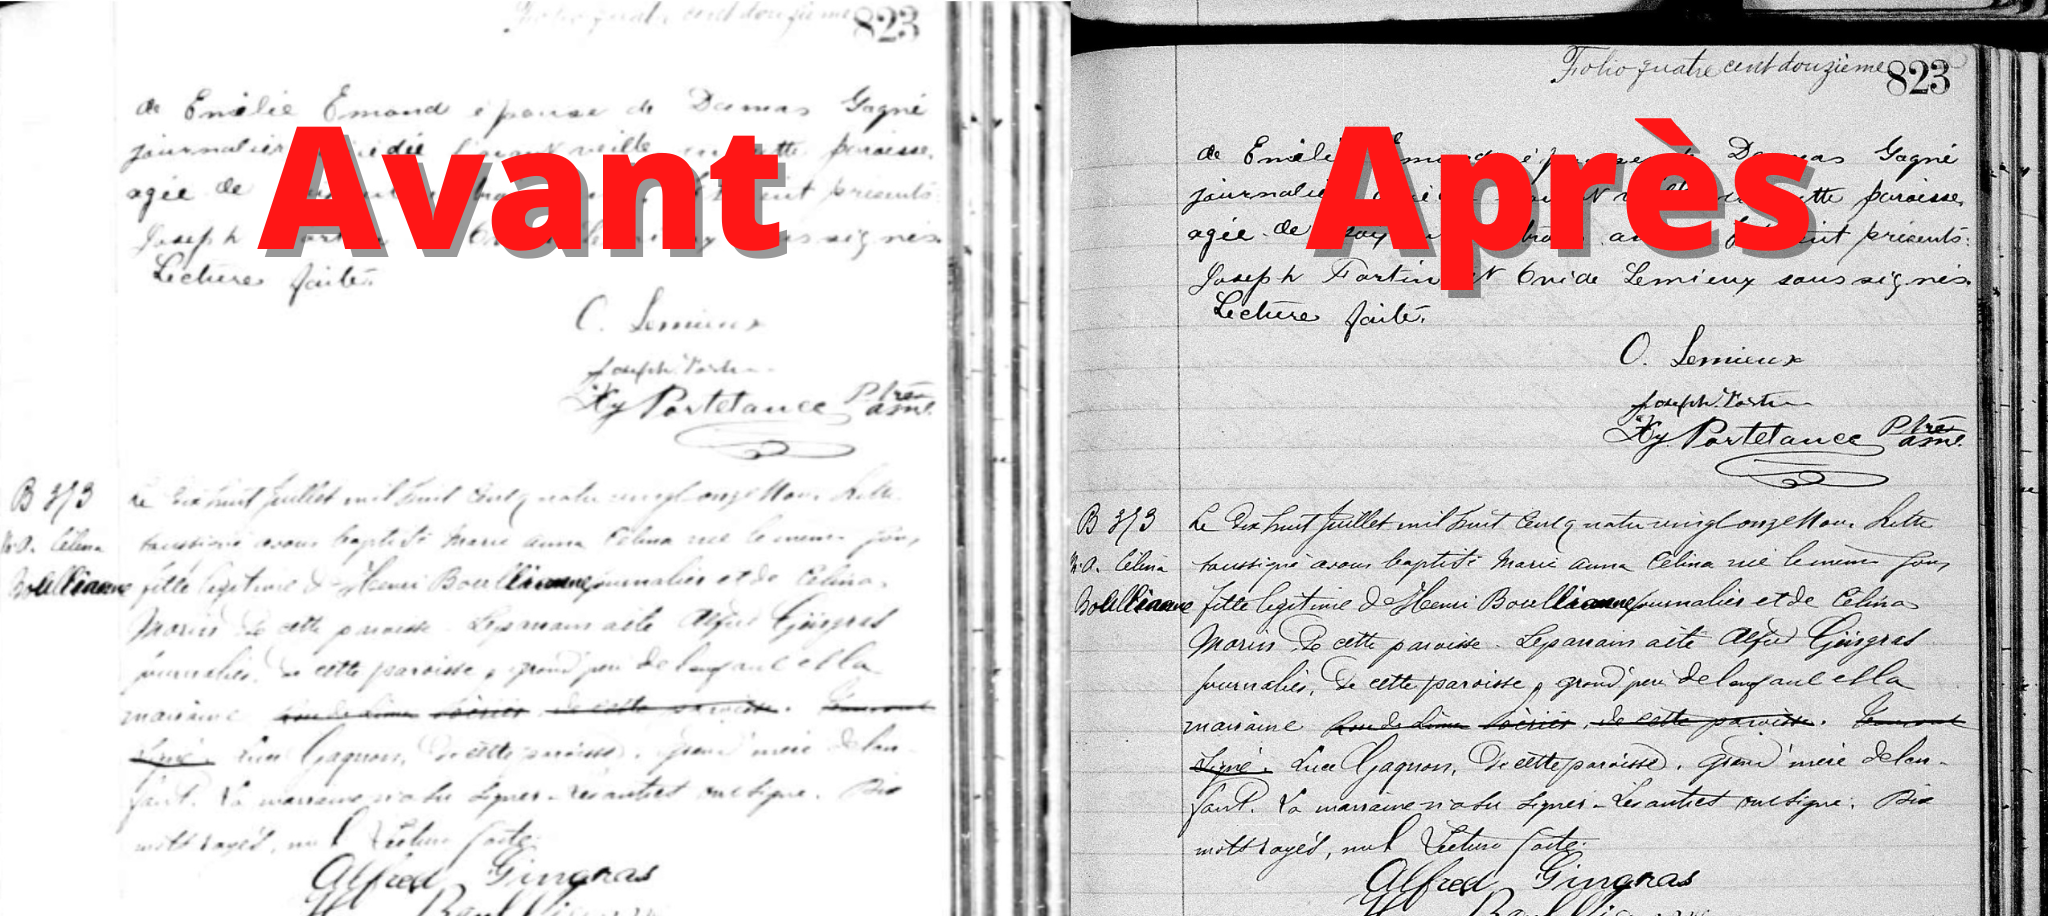 Avant
823
de Emélie Emond épouse de Damas Gagné
journalier cette paroisse,
agée de présents
Joseph soussignés
Lecture faite.
O. Lemieux
Joseph Fortin
Hy Portelance Ptre
asst.
B 373
M.A. Célina
Boullianne
Le dix huit Juillet mil huit cent quatre vingt onze Nous Prêtre
soussigné avons baptisé Marie Anna Célina née le même jour,
fille légitime d'Henri Boullianne journalier et de Célina
Morin de cette paroisse. Le parrain a été Alfred Gingras
journalier, de cette paroisse, grand père de l'enfant et la
marraine de cette paroisse.
signé. Luce Gagnon, de cette paroisse, grand'mère de l'en-
fant. La marraine n'a su signer. Les autres ont signé. Dix
mots rayés, nul. Lecture faite.
Alfred Gingras
Après
Folio quatre cent douzième 823
de Damas Gagné
journalier cette paroisse,
agée de présents:
Joseph Fortin et Ovide Lemieux soussignés.
Lecture faite.
O. Lemieux
Joseph Fortin
Hy Portelance Ptre
asst.
B 373
M.A. Célina
Boullianne
Le dix huit Juillet mil huit cent quatre vingt onze Nous Prêtre
soussigné avons baptisé Marie Anna Célina née le même jour,
fille légitime d'Henri Boullianne journalier et de Célina
Morin de cette paroisse. Le parrain a été Alfred Gingras
journalier, de cette paroisse, grand père de l'enfant et la
marraine de cette paroisse.
signé. Luce Gagnon, de cette paroisse, grand'mère de l'en-
fant. La marraine n'a su signer. Les autres ont signé. Dix
mots rayés, nul. Lecture faite.
Alfred Gingras